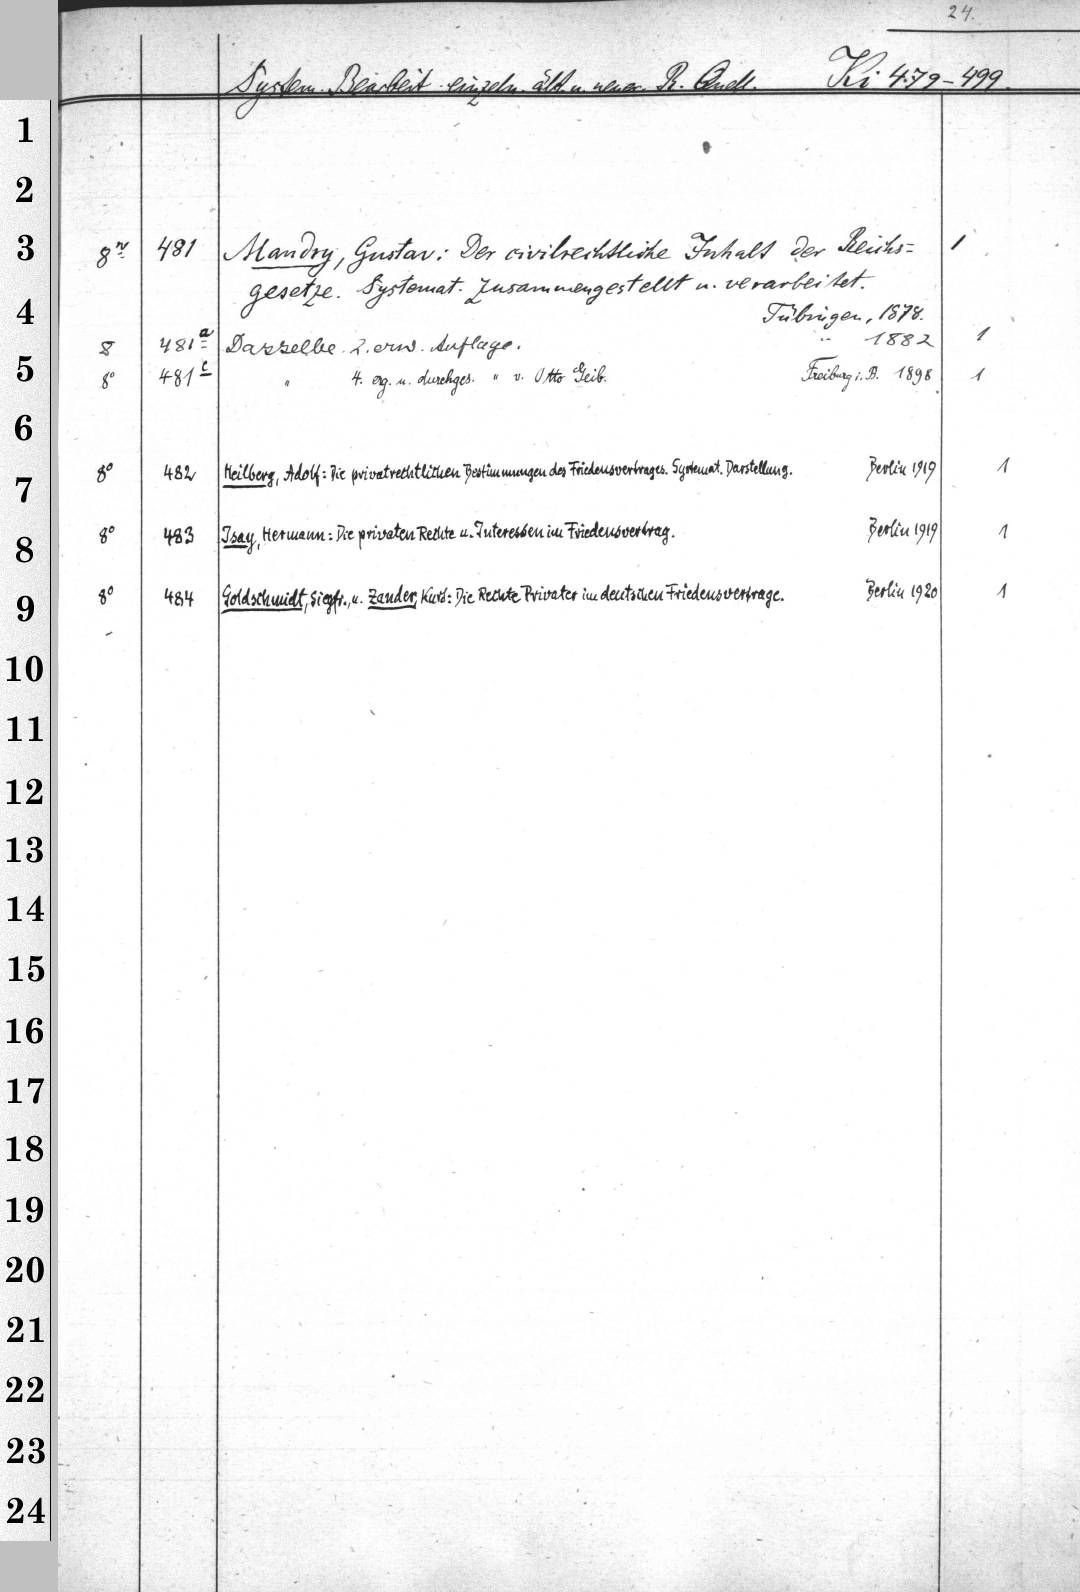 24.
System. Bearbeit. einzeln. ält. u. neuer. R. Quell. Ki 479-499.
1
2
3
8º 481 Mandry, Gustav: Der civilrechtliche Inhalt der Reichs= 1
gesetze. Systemat. zusammengestellt u. verarbeitet.
4
Tübingen, 1878.
8 481a Dasselbe. 2. erw. Auflage. " 1882 1
5
8º 481c " 4. erg. u. durchges. " v. Otto Geib. Freiburg i. B. 1898 1
6
8º 482 Heilberg, Adolf: Die privatrechtlichen Bestimmungen des Friedensvertrages. Systemat. Darstellung. Berlin 1919 1
7
8º 483 Isay, Hermann: Die privaten Rechte u. Interessen im Friedensvertrag. Berlin 1919 1
8
8º 484 Goldschmidt, Siegfr., u. Zander, Kurt: Die Rechte Privater im deutschen Friedensvertrage. Berlin 1920 1
9
10
11
12
13
14
15
16
17
18
19
20
21
22
23
24